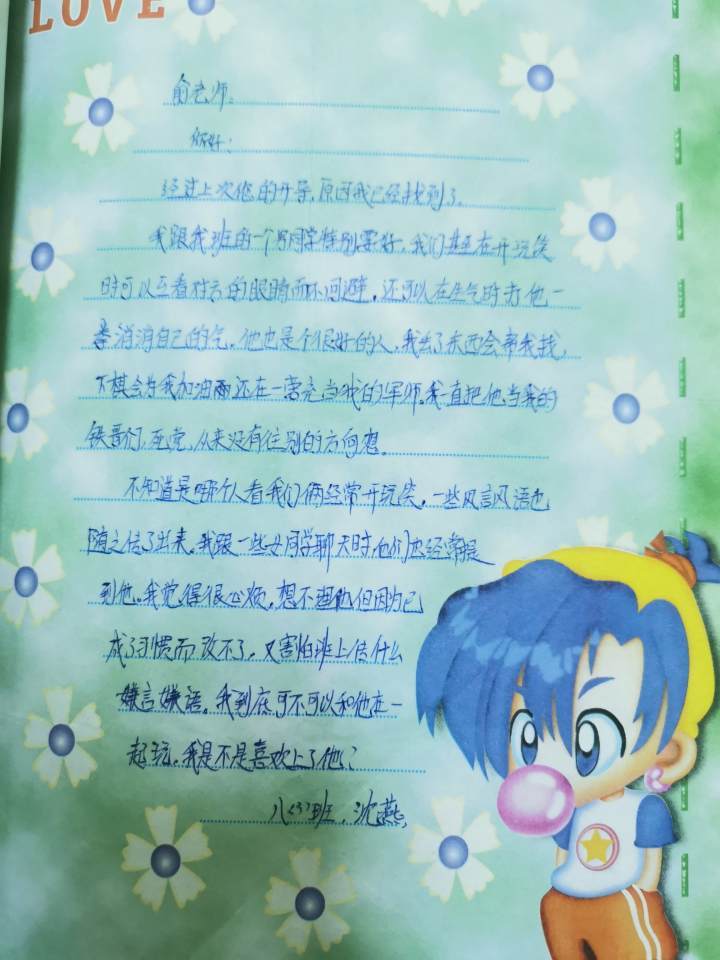 LOVE
俞老师。
你好：
经过上次您的开导，原因我已经找到了。
我跟我班的一个男同学特别要好，我们甚至在开玩笑
时可以互看对方的眼睛而不回避，还可以在生气时打他一
拳消消自己的气。他也是个很好的人，我丢了东西会帮我找，
下棋会为我加油而还在一旁充当我的军师。我一直把他当我的
铁哥们，死党，从来没有往别的方向想。
不知道是哪个人看我们俩经常开玩笑，一些风言风语也
随之传了出来。我跟一些女同学聊天时他们也经常提
到他。我觉得很心烦，想不理他但因为已
成了习惯而改不了，又害怕班上传什么
嫌言嫌语。我到底可不可以和他在一
起玩。我是不是喜欢上了他？
八〈3〉班．沈燕